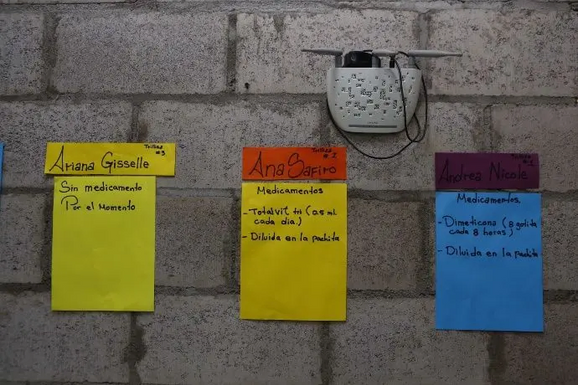 Trilliza
#3
Ariana Gisselle
Sin medicamento
Por el Momento
Trilliza
#2
Ana Safiro
Medicamentos
- Totalvit tri (0.5 ml
cada dia.)
- Diluida en la pachita
Trilliza
#1
Andrea Nicole
Medicamentos
- Dimeticona (8 gotita
cada 8 horas)
- Diluida en la pachita